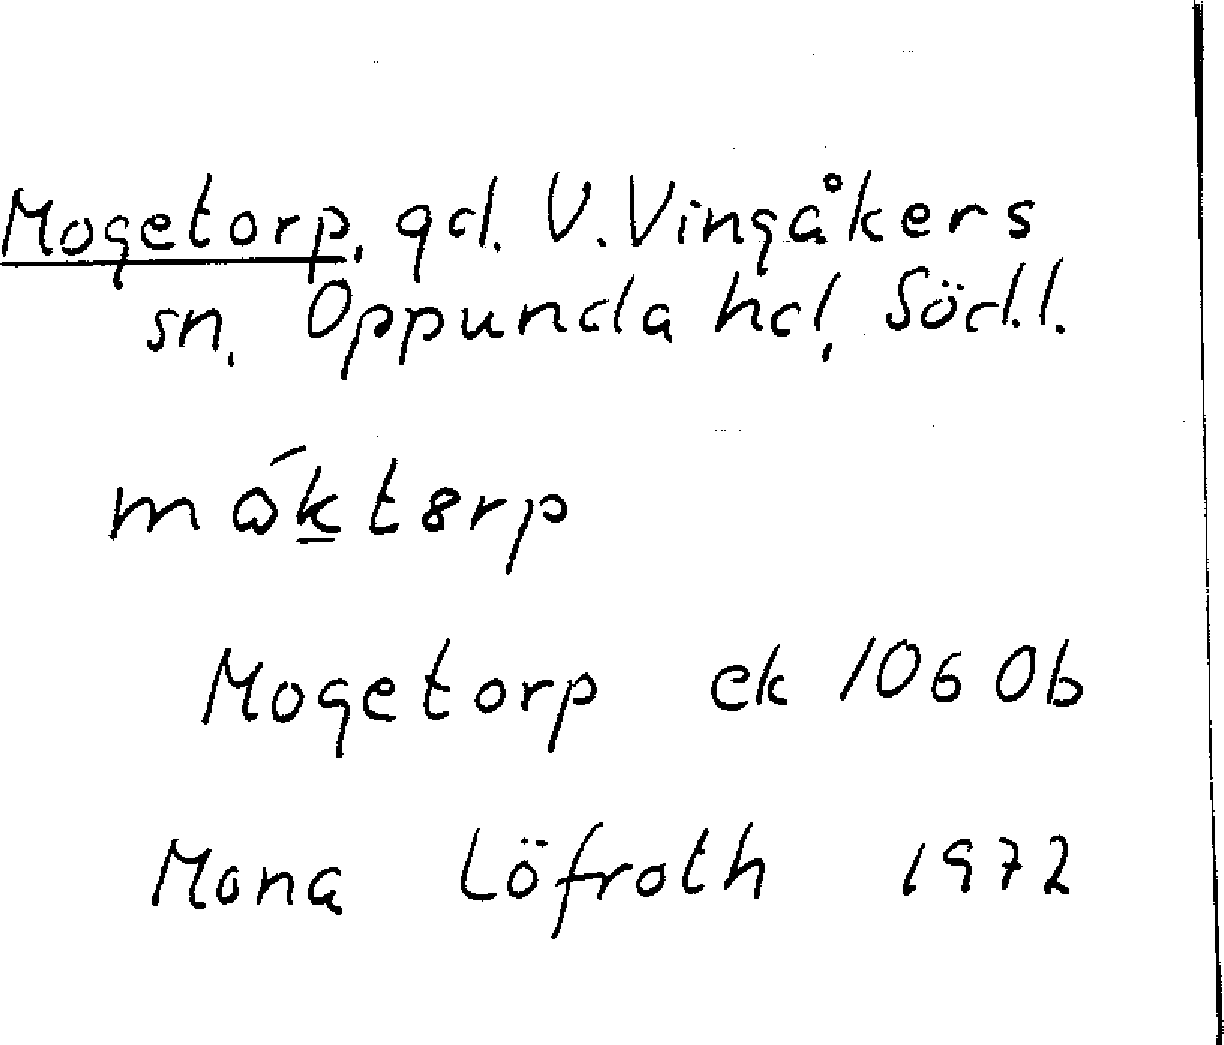 Mogetorp, gd. V. Vingåkers
sn. Oppunda hd, Södl.l.
Mogetorp ek 1060b
Mona Löfroth 1972